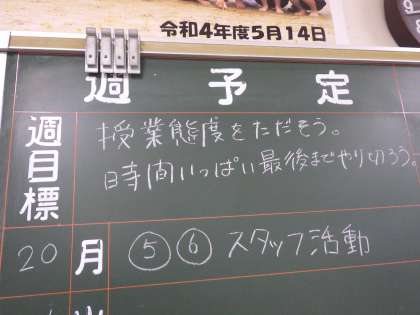 令和4年度5月14日
週予定
週目標
授業態度をただそう。
時間いっぱい最後までやり切ろう。
20 月 ⑤ ⑥ スタッフ活動